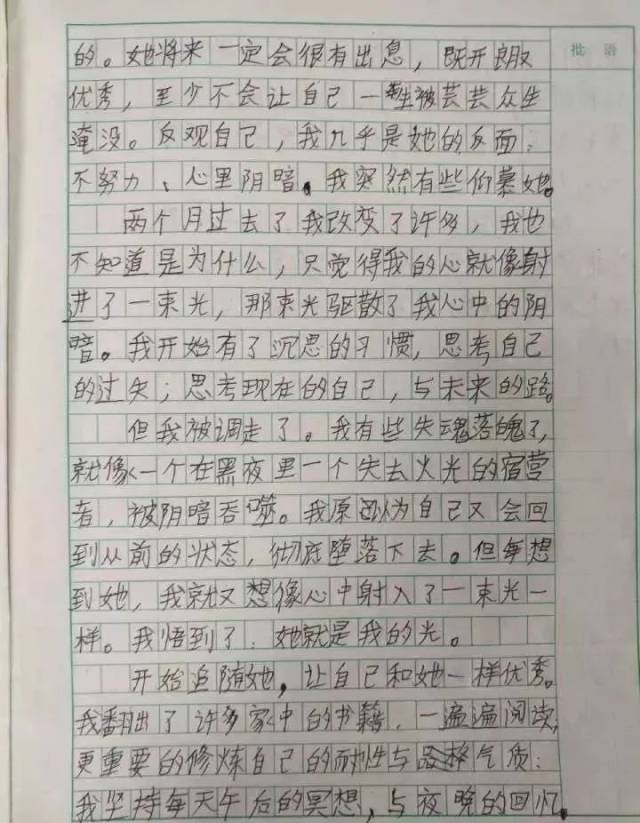 批语
的。她将来一定会很有出息，既开朗又
优秀，至少不会让自己一生被芸芸众生
淹没。反观自己，我几乎是她的反面：
不努力、心里阴暗。我突然有些仰慕她。
两个月过去了我改变了许多，我也
不知道是为什么，只觉得我的心就像射
进了一束光，那束光驱散了我心中的阴
暗。我开始有了沉思的习惯，思考自己
的过失；思考现在的自己，与未来的路。
但我被调走了。我有些失魂落魄了，
就像一个在黑夜里一个失去火光的宿营
者，被阴暗吞噬。我原以为自己又会回
到从前的状态，彻底堕落下去。但每想
到她，我就又想像心中射入了一束光一
样。我悟到了：她就是我的光。
开始追随她，让自己和她一样优秀。
我翻出了许多家中的书籍，一遍遍阅读，
更重要的修炼自己的耐性与品格气质：
我坚持每天午后的冥想，与夜晚的回忆。